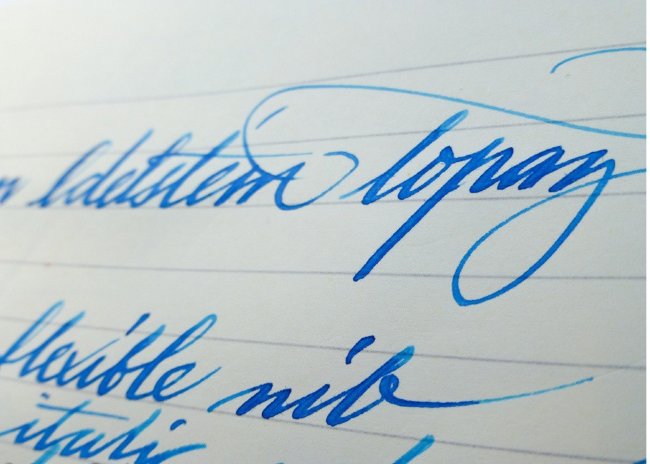 Edelstein Topaz
flexible nib
itali